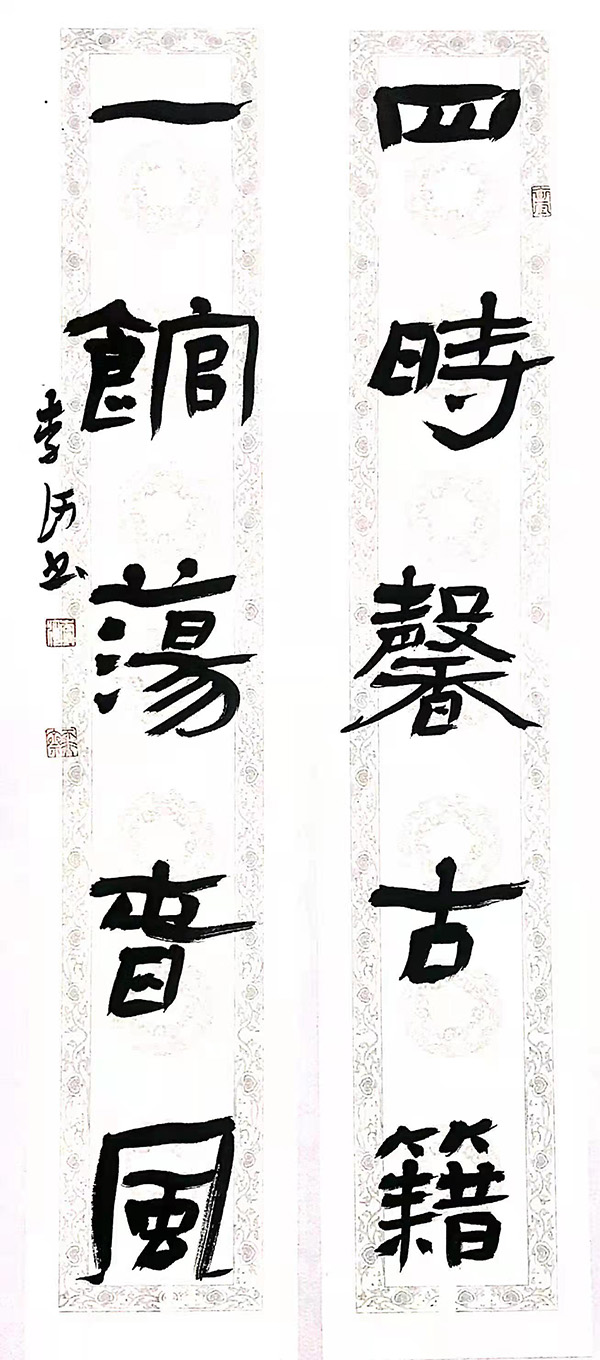 四時馨古籍
一館蕩旾風
李 书